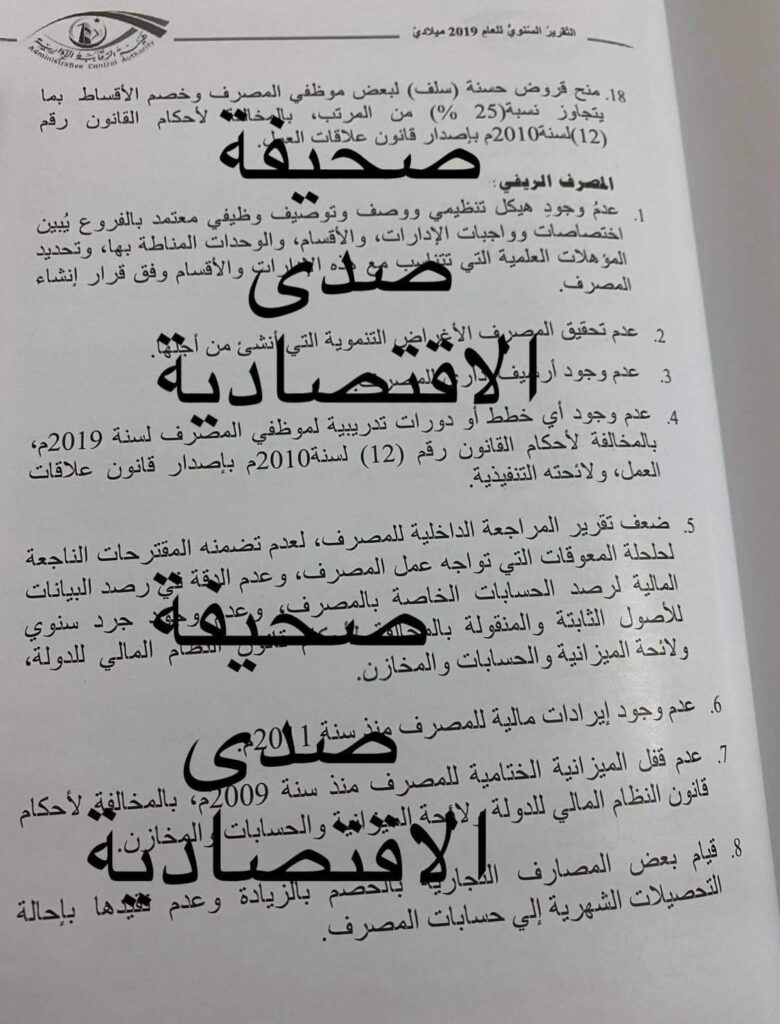 التقرير السنوي للعام 2019 ميلادي
هيئة الرقابة الإدارية
Administrative Control Authority
18. منح قروض حسنة (سلف) لبعض موظفي المصرف وخصم الأقساط بما
يتجاوز نسبة(25 %) من المرتب، بالمخالفة لأحكام القانون رقم
(12)لسنة2010م بإصدار قانون علاقات العمل.
صحيفة
المصرف الريفي:
1. عدمُ وجودِ هيكل تنظيمي ووصف وتوصيف وظيفي معتمد بالفروع يُبين
اختصاصات وواجبات الإدارات، والأقسام، والوحدات المناطة بها، وتحديد
المؤهلات العلمية التي تتناسب مع هذه الإدارات والأقسام وفق قرار إنشاء
المصرف.
صدى
2. عدم تحقيق المصرف الأغراض التنموية التي أنشئ من أجلها.
الاقتصادية
3. عدم وجود أرشيف إداري بالمصرف.
4. عدم وجود أي خطط أو دورات تدريبية لموظفي المصرف لسنة 2019م،
بالمخالفة لأحكام القانون رقم (12) لسنة2010م بإصدار قانون علاقات
العمل، ولائحته التنفيذية.
5. ضعف تقرير المراجعة الداخلية للمصرف، لعدم تضمنه المقترحات الناجعة
لحلحلة المعوقات التي تواجه عمل المصرف، وعدم الدقة في رصد البيانات
المالية لرصد الحسابات الخاصة بالمصرف، وعدم وجود جرد سنوي
للأصول الثابتة والمنقولة بالمخالفة لأحكام قانون النظام المالي للدولة،
ولائحة الميزانية والحسابات والمخازن.
صحيفة
6. عدم وجود إيرادات مالية للمصرف منذ سنة 2011م.
صدى
7. عدم قفل الميزانية الختامية للمصرف منذ سنة 2009م، بالمخالفة لأحكام
قانون النظام المالي للدولة ولائحة الميزانية والحسابات والمخازن.
الاقتصادية
8. قيام بعض المصارف التجارية بالخصم بالزيادة وعدم تقيدها بإحالة
التحصيلات الشهرية إلي حسابات المصرف.